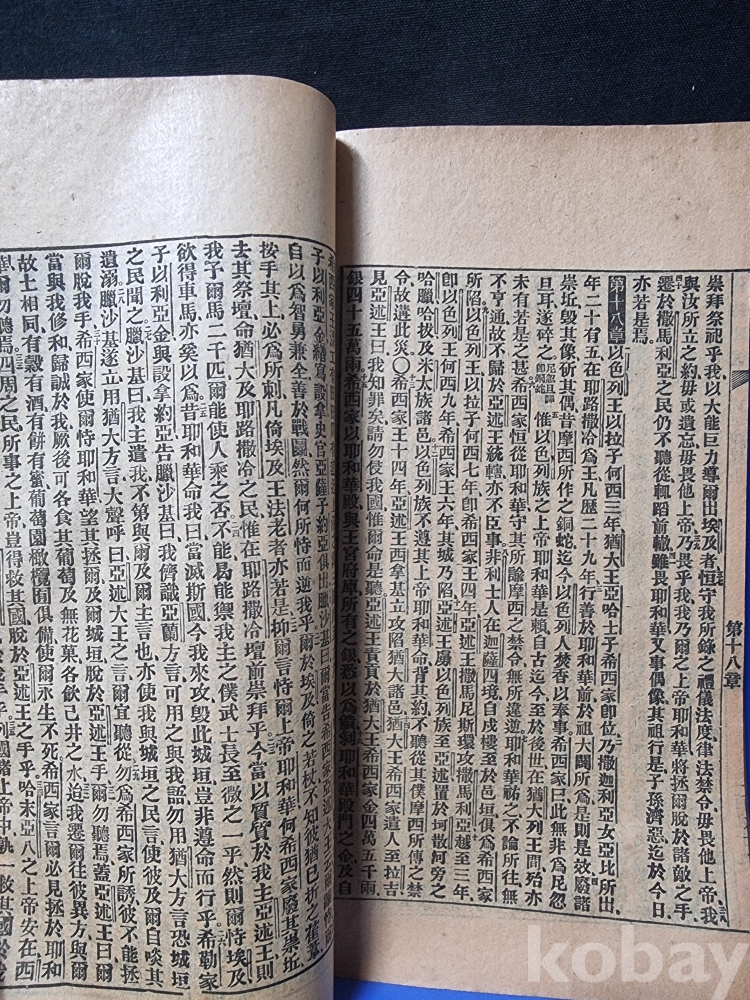 第十八章
崇拜祭祀乎我以大能巨力導爾出埃及者恒守我所錄之禮儀法度律法禁令毋畏他上帝我
與汝所立之約毋或遺忘毋畏他上帝乃畏乎我我乃爾之上帝耶和華將拯爾脫於諸敵之手
撒馬利亞之民仍不聽從輒蹈前轍雖畏耶和華又事偶像其祖行是子孫濟惡迄於今日
亦若是焉
第十八章 以色列王以拉子何西三年猶大王亞哈士子希西家即位乃撒迦利亞女亞比所出
年二十有五在耶路撒冷爲王凡歷二十九年行善於耶和華前於祖大闢所爲是則是效廢諸
崇坵毀其像斫其偶昔摩西所作之銅蛇迄今以色列人焚香以奉事希西家曰此無非爲尼忽
旦耳遂碎之 惟以色列族之上帝耶和華是賴自古迄今至於後世在猶大列王間殆亦
未有若是之甚希西家恒從耶和華守其所諭摩西之禁令無所違逆耶和華祐之不論所往無
不亨通故不歸於亞述王統轄亦不臣事非利士人在迦薩四境自戍樓至於邑垣俱爲希西家
所陷以色列王以拉子何西七年即希西家王四年亞述王撒馬尼斯環攻撒馬利亞越至三年
即以色列王何西九年希西家王六年其城乃陷亞述王虜以色列族至亞述置於坷散河旁之
哈臘哈拔及米太族諸邑以色列族不遵其上帝耶和華命背其約不聽從其僕摩西所傳之禁
令故遘此災〇希西家王十四年亞述王西拿基立攻陷猶大諸邑猶大王希西家遣人至拉吉
見亞述王曰我知罪矣請勿侵我國惟爾命是聽亞述王責貢於猶大王希西家金四萬五千兩
銀四十五萬兩希西家以耶和華殿與王宮府庫所有之銀悉以爲饋剝耶和華殿門之金及自
子以利亞金繕寫設拿史官亞薩子約亞俱出臘沙基曰爾當告希西家
自以爲智勇兼全善於戰鬭然爾何所恃而逆我乎爾於埃及倚之若杖不知彼猶已折之葦
按乎其上必爲所刺凡倚埃及王法老者亦若是抑爾言恃爾上帝耶和華何希西家廢其崇坵
去其祭壇命猶大及耶路撒冷之民惟在耶路撒冷壇前崇拜乎今當以質質於我主亞述王則
我予爾馬二千匹爾能使人乘之否不能曷能禦我主之僕武士長至微之一乎然則爾恃埃及
欲得車馬亦奚以爲昔耶和華命我曰當滅斯國今我來攻毀此城垣豈非遵命而行乎希勒家
子以利亞金與設拿約亞告臘沙基曰我儕識亞蘭方言可用之與我語勿用猶大方言恐城垣
之民聞之臘沙基曰我主遣我不第與爾及爾主言也亦使我與城垣之民言使彼及爾自啖其
遺溺臘沙基遂立用猶大方言大聲呼曰亞述大王之言爾宜聽從勿爲希西家所誘彼不能
爾脫我手希西家使爾恃耶和華望其拯爾及爾城垣脫於亞述王手爾勿聽焉蓋亞述王曰爾
當與我修和歸誠於我厥後可各食其葡萄及無花菓各飲己井之水迨我遷爾往彼異方與爾
故土相同有穀有酒有餅有蜜葡萄園橄欖囿俱備使爾永生不死希西家言爾必見拯於耶和
華爾勿聽焉四周之民所事之上帝豈得救其國脫於亞述王之手乎哈末亞八之上帝安在西
kobay